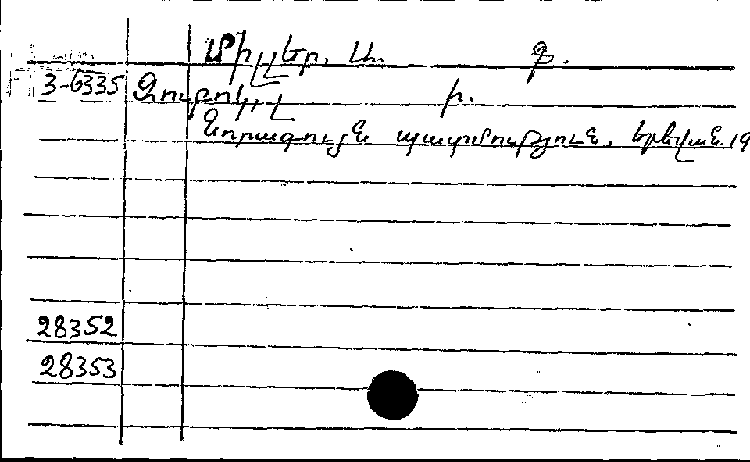 Միլլեր, Ա. Ֆ.
3-6335
Նորագույն պատմություն, Երևան. 19
28352
28353